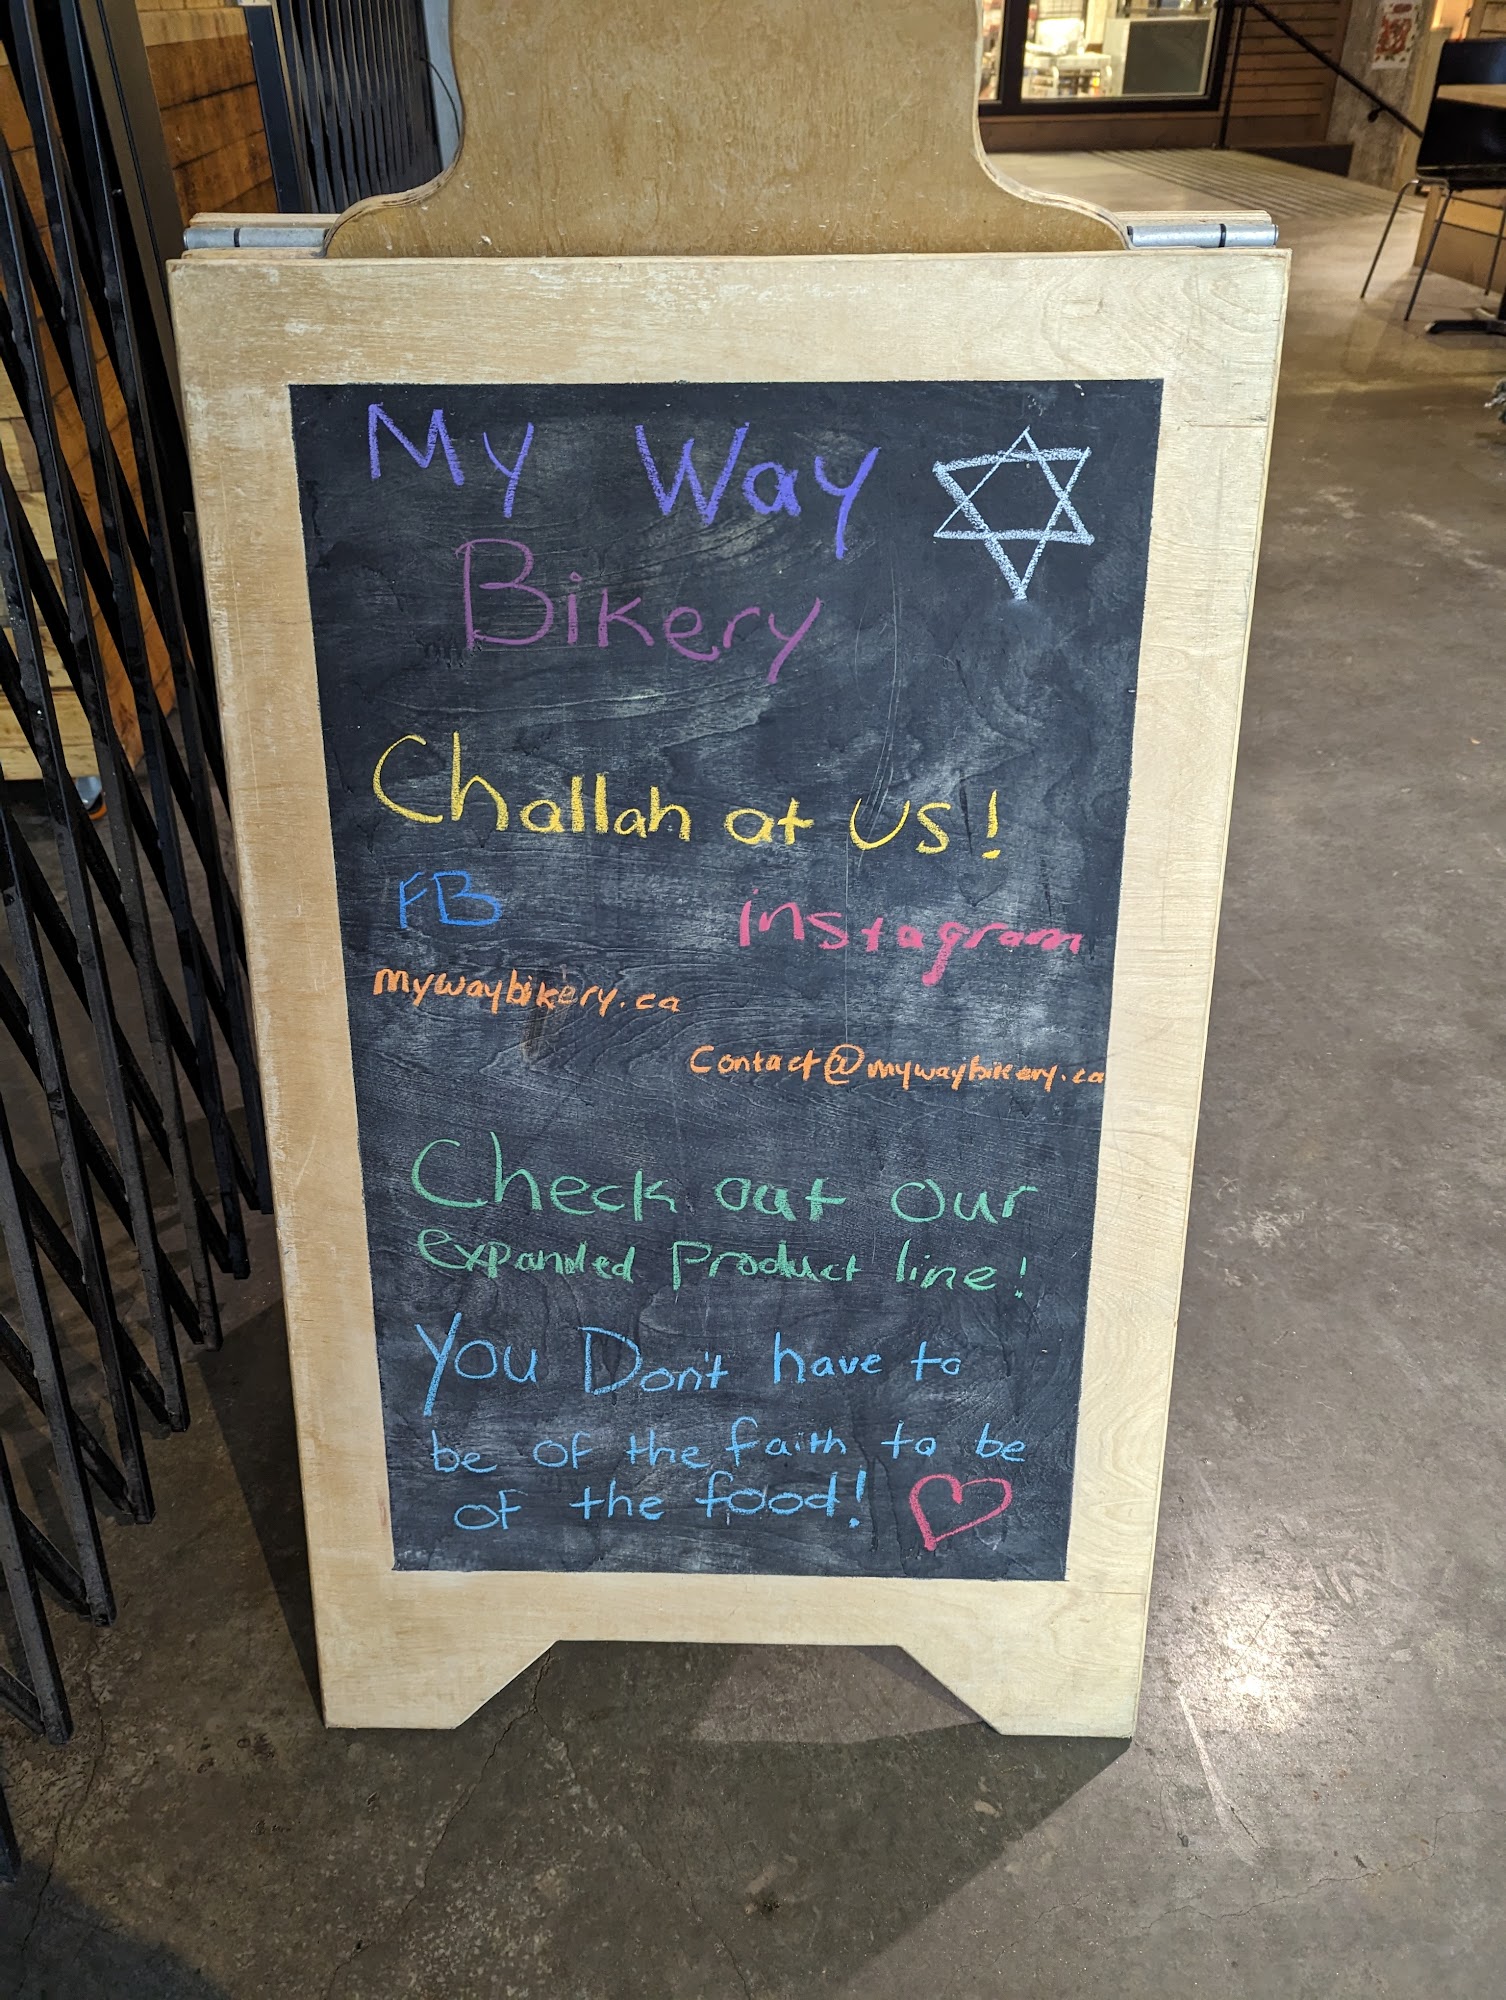 My Way
Bikery
Challah at us!
FB
instagram
mywaybikery.ca
Contact@mywaybikery.ca
Check out our
expanded product line!
You Don't have to
be of the faith to be
of the food!